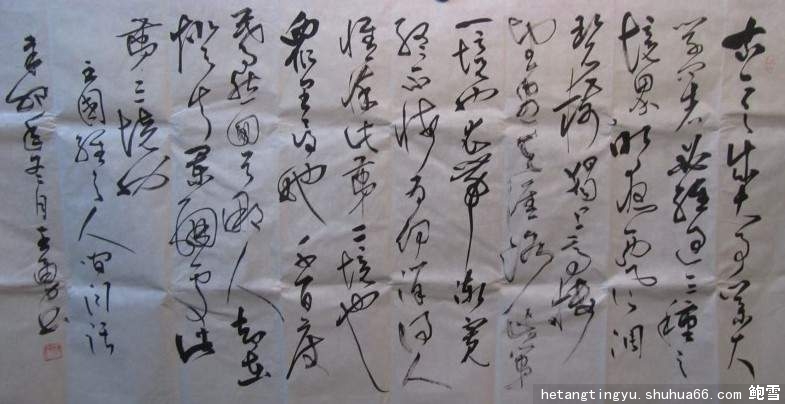 古今之成大事業大
学问者必經過三種之
境界昨夜西风凋
碧树獨上高樓
望盡天涯路此第
一境也衣带漸寬
终不悔为伊消得人
憔悴此第二境也
眾里尋他千百度
蓦然回首那人却在
燈火阑珊處此
第三境也
王國維之人间词話
年冬月王勇书
hetangtingyu.shuhua66.com 鲍雪